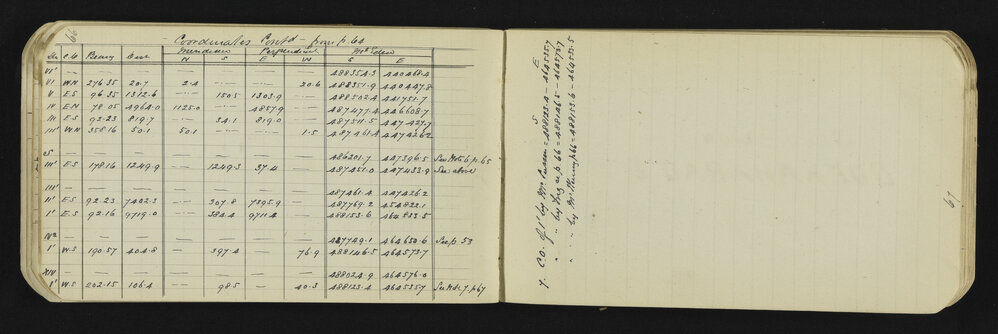 66
Coordinates Cont'd - from p 64
Meridian Perpendicular Mt Eden
Bearing Dist N S E W S E
VI' — — — — — — 488354.3 440468.4
VI W.N 276.35 20.7 2.4 — — 20.6 488351.9 440447.8
V E.S 96.35 1312.6 — 150.5 1303.9 — 488502.4 441751.7
IV E.N 78.05 4964.0 1125.0 — 4857.9 — 487477.4 446608.7
III E.S 92.23 819.7 — 34.1 819.0 — 487511.5 447427.7
III' W.N 358.16 50.1 50.1 — — 1.5 487461.4 447426.2
S — — — — — — 486201.7 447396.5 See Note 6 p. 65
III' E.S 178.16 1249.9 — 1249.3 37.4 — 487451.0 447433.9 See above
III' — — — — — — 487461.4 447426.2
II' E.S 92.23 7402.3 — 307.8 7395.9 — 487769.2 454822.1
I' E.S 92.16 9719.0 — 384.4 9711.4 — 488153.6 464533.5
— — — — — — 487749.1 464650.6 See p. 53
I' W.S 190.57 404.8 — 397.4 — 76.9 488146.5 464573.7
XIV — — — — — — 488024.9 464576.0
I' W.S 202.15 106.4 — 98.5 — 40.3 488123.4 464535.7 See Note 7. p 67
67
S E
7. C.O. of I' by Mr = 488123.4 — 464535.7
" " by p. 66 = 488146.5 — 464573.7
" " by Mr p 66 = 488153.6 — 464533.5